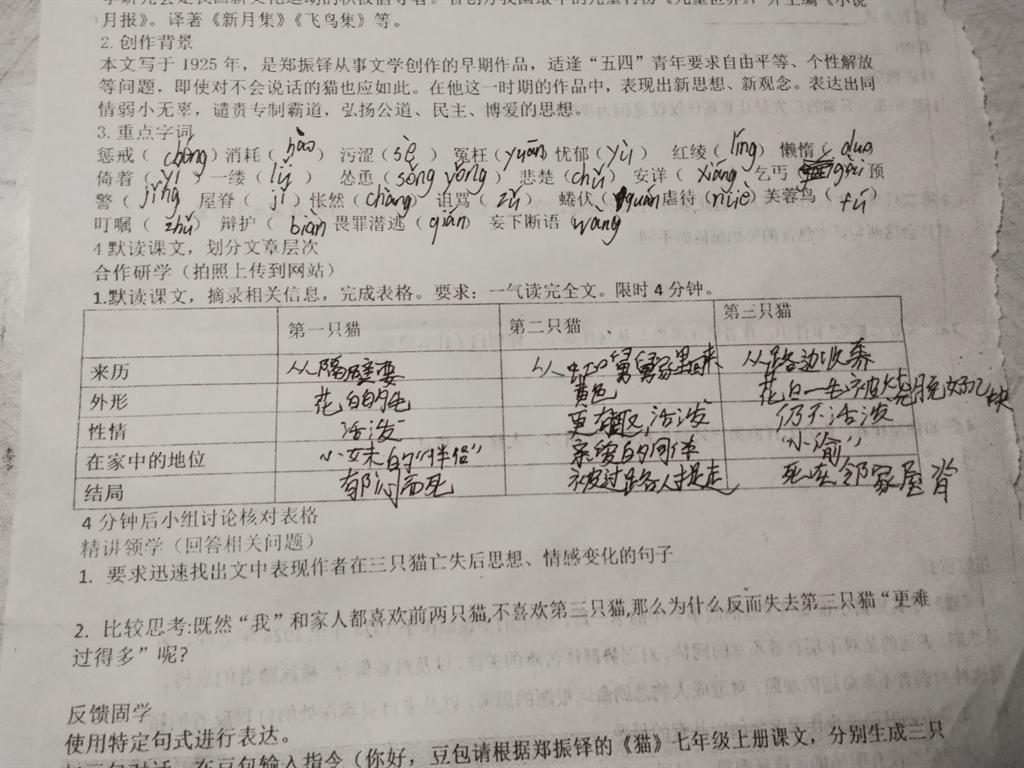 学研究会是我国新文化运动的积极倡导者。曾创办我国最早的儿童刊物《儿童世界》，并主编《小说
月报》。译著《新月集》《飞鸟集》等。
2. 创作背景
本文写于 1925 年，是郑振铎从事文学创作的早期作品，适逢“五四”青年要求自由平等、个性解放
等问题，即使对不会说话的猫也应如此。在他这一时期的作品中，表现出新思想、新观念。表达出同
情弱小无辜，谴责专制霸道，弘扬公道、民主、博爱的思想。
3. 重点字词
惩戒（ chéng ）消耗（ hào ） 污涩（ sè ） 冤枉（ yuān ）忧郁（ yù ） 红绫（ líng ） 懒惰（ duo
倚着（ yǐ ） 一缕（ lǚ ） 怂恿（ sǒng yǒng ） 悲楚（ chǔ ） 安详（ xiáng ） 乞丐（ gài 预
警（ jǐng ） 屋脊（ jǐ ）怅然（ chàng ） 诅骂（ zǔ ） 蜷伏（ quán 虐待（ nüè ）芙蓉鸟（ fú ）
叮嘱（ zhǔ ） 辩护（ biàn 畏罪潜逃（ qián ） 妄下断语 wàng
4 默读课文，划分文章层次
合作研学（拍照上传到网站）
1.默读课文，摘录相关信息，完成表格。要求：一气读完全文。限时 4 分钟。
第一只猫 第二只猫 第三只猫
来历 从隔壁要 从舅舅家里 从路边收养
外形 花白的毛 黄色 花白 毛被烧脱好几块
性情 活泼 更有趣，活泼 仍不活泼
在家中的地位 小妹的“伴侣” 亲密的同伴 “小偷”
结局 郁闷而死 被过路人捉走 死在邻家屋背
4 分钟后小组讨论核对表格
精讲领学（回答相关问题）
1. 要求迅速找出文中表现作者在三只猫亡失后思想、情感变化的句子
2. 比较思考:既然“我”和家人都喜欢前两只猫,不喜欢第三只猫,那么为什么反而失去第三只猫“更难
过得多”呢?
反馈固学
使用特定句式进行表达。
在豆包输入指令（你好，豆包请根据郑振铎的《猫》七年级上册课文，分别生成三只